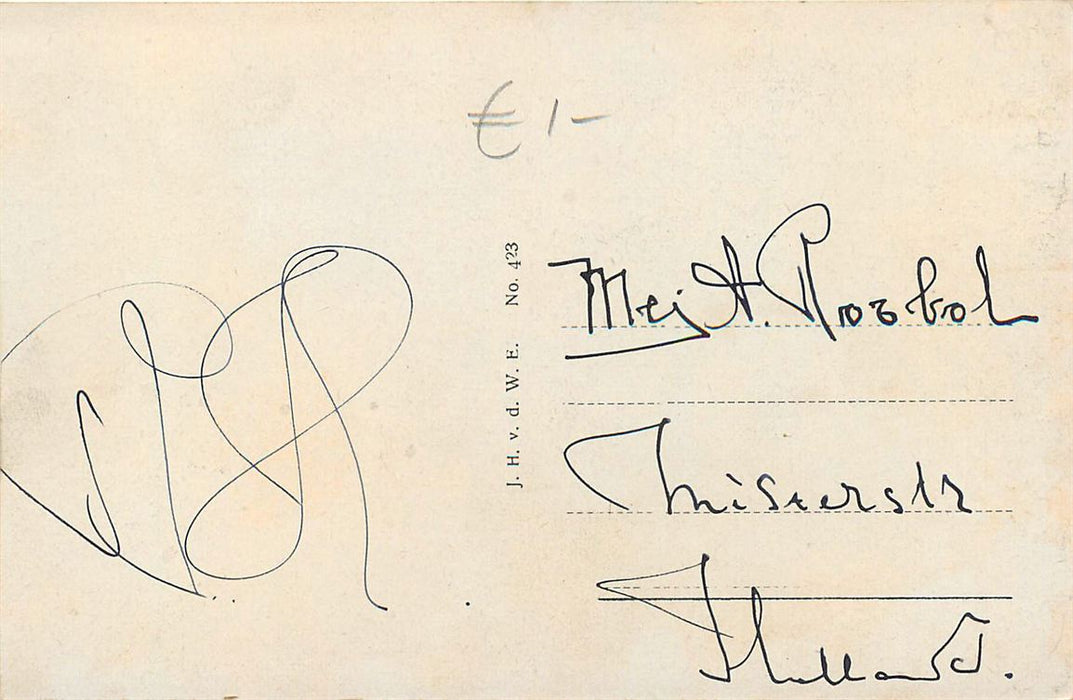 € 1-
J. H. v. d. W. E. No. 423
Mej A. Rozbol
Misterstr
Holland.